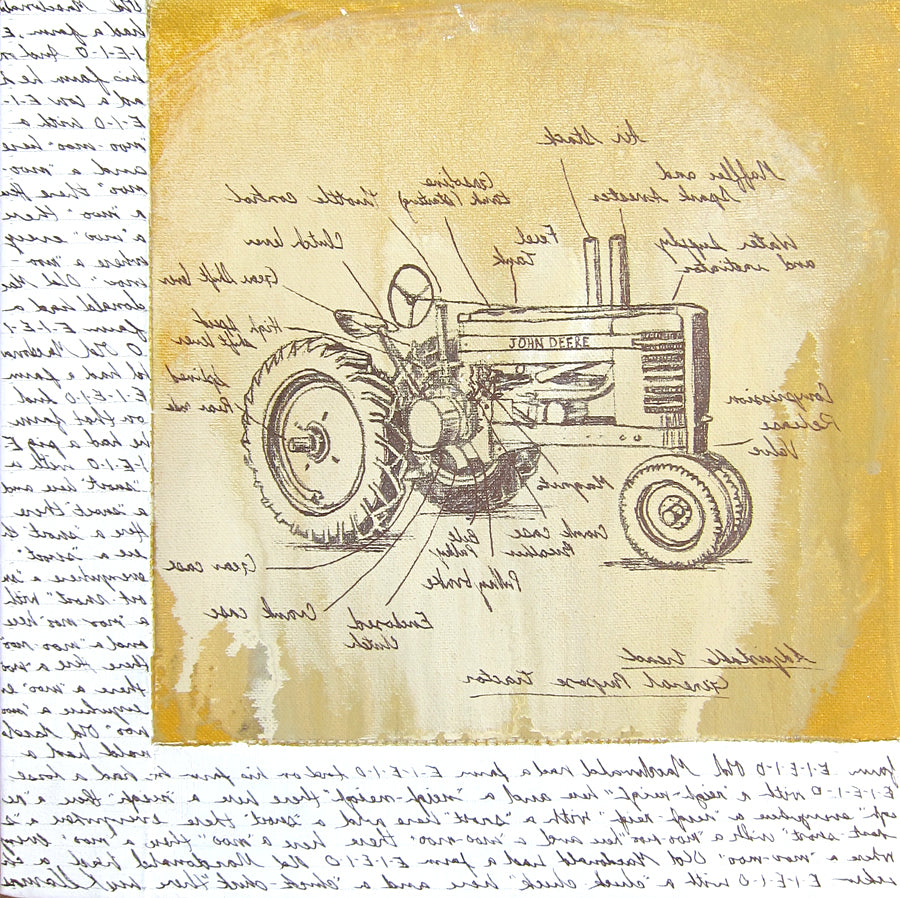 Old Macdonald
had a farm. E
I-E-I-O And on
his farm he h
ad a cow E-I-
E-I-O with a
"moo-moo" here
and a "moo
moo" there Here
a "moo" there
a "moo" every
where a "moo
moo" Old Mac
donald had a
farm E-I-E-I-
O Old Macdon
ald had a farm
E-I-E-I-O And
on that farm
he had a pig E
I-E-I-O with a
"snort" here and
a "snort" there
Here a "snort" th
ere a "snort"
everywhere a "sn
ort-snort" with
a "moo-moo" here
and a "moo-moo"
there Here a "moo"
there a "moo" ev
erywhere a "moo
moo" Old Macdo
nald had a
farm E-I-E-I-O Old Macdonald had a farm E-I-E-I-O And on his farm he had a horse
E-I-E-I-O with a "neigh-neigh" here and a "neigh-neigh" there here a "neigh" there a
"neigh" everywhere a "neigh-neigh" with a "snort" here and a "snort" there everywhere a
"snort" with a "moo-moo" here and a "moo-moo" there here a "moo" there a "moo" every
where a "moo-moo" Old Macdonald had a farm E-I-E-I-O Old Macdonald had a
E-I-E-I-O with a "cluck-cluck" here and a "cluck-cluck" there
Air Stack
Muffler and
Spark Arrester
Gasoline
tank (starting)
Throttle control
Fuel
tank
Water supply
and
Clutch lever
Gear Shift lever
High speed
shift lever
Splined
Rear axle
JOHN DEERE
Compression
Release
Valve
Magneto
Crank case
Breather
Belt
Pulley
Pulley brake
Gear case
Crank case
Enclosed
clutch
Adjustable tread
General Purpose tractor